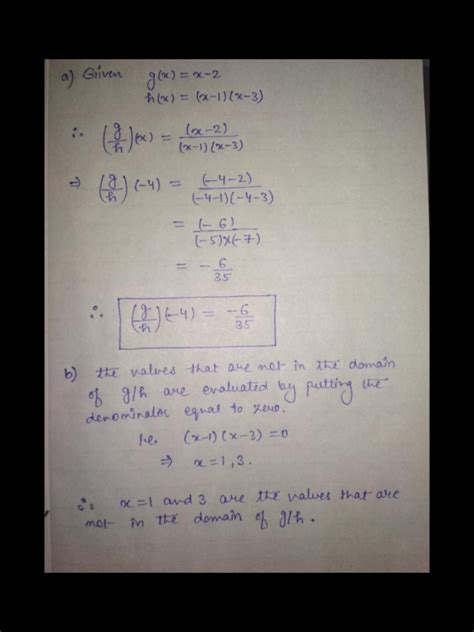 a) Given g(x) = x-2
h(x) = (x-1)(x-3)
∴ (g/h)(x) = (x-2)/(x-1)(x-3)
⇒ (g/h)(-4) = (-4-2)/(-4-1)(-4-3)
= (-6)/(-5)×(-7)
= -6/35
∴ (g/h)(-4) = -6/35
b) the values that are not in the domain
of g/h are evaluated by putting the
denominator equal to zero.
i.e. (x-1)(x-3)=0
⇒ x=1,3.
∴ x=1 and 3 are the values that are
not in the domain of g/h.